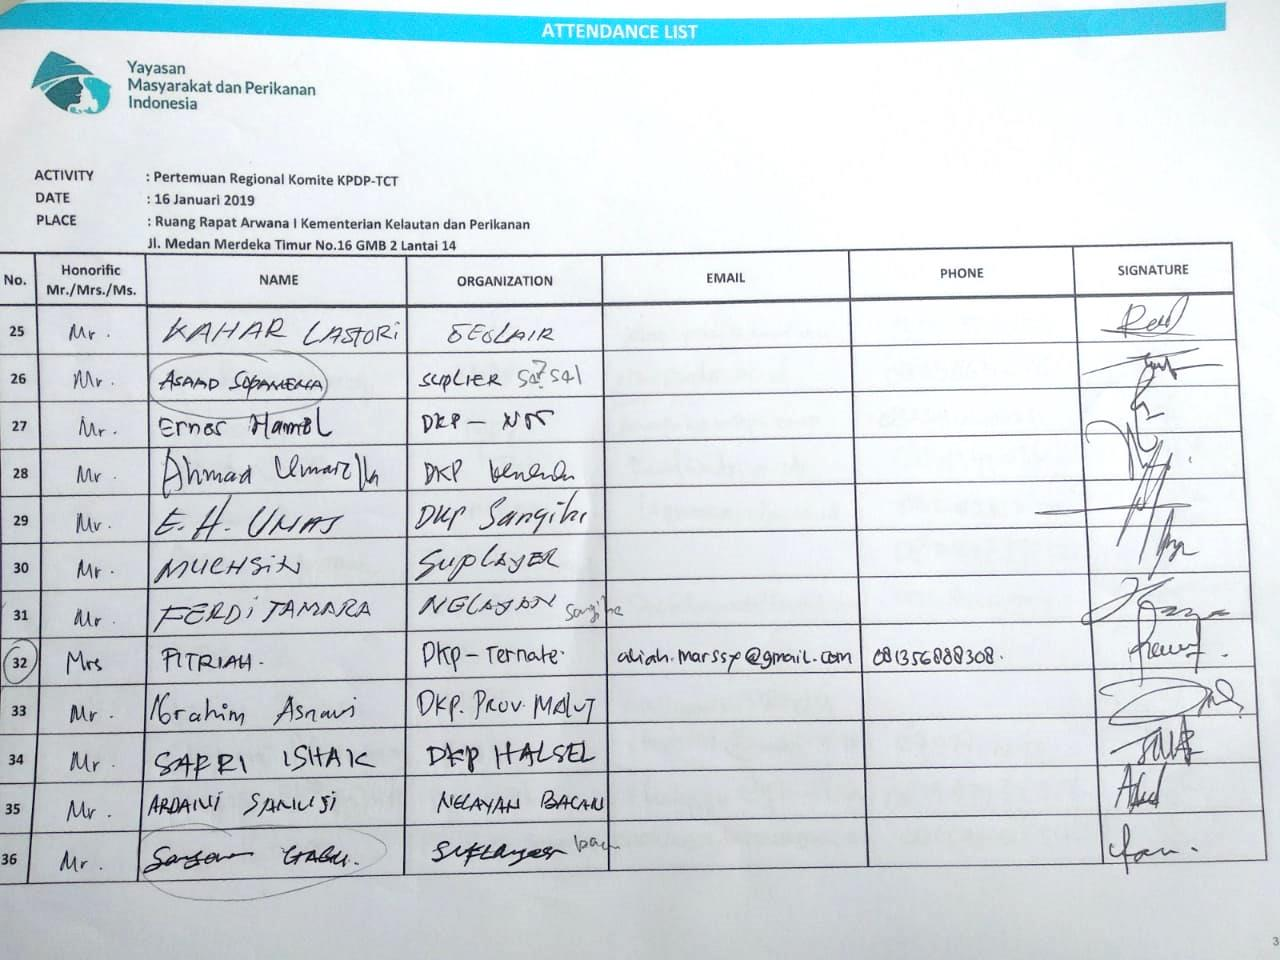 ATTENDANCE LIST
Yayasan
Masyarakat dan Perikanan
Indonesia
ACTIVITY : Pertemuan Regional Komite KPDP-TCT
DATE : 16 Januari 2019
PLACE : Ruang Rapat Arwana I Kementerian Kelautan dan Perikanan
Jl. Medan Merdeka Timur No.16 GMB 2 Lantai 14
No. Honorific Mr./Mrs./Ms. NAME ORGANIZATION EMAIL PHONE SIGNATURE
25 Mr. KAHAR LASTORI
26 Mr. ASAAD SUPLIER
27 Mr. Ernes Hamel DKP-NTT
28 Mr. Ahmad DKP
29 Mr. E.H. UMAS DKP Sangihe
30 Mr. MUCHSIN SUPLAYER
31 Mr. FERDI TAMARA NELAYAN Sangihe
32 Mrs FITRIAH. DKP-Ternate. aliah.marssy@gmail.com 081356888308.
33 Mr. Ibrahim Asnawi DKP. PROV. MALUT
34 Mr. SAFRI ISHAK DKP HALSEL
35 Mr. ARDAINI SANUSI NELAYAN BACAN
36 Mr
3